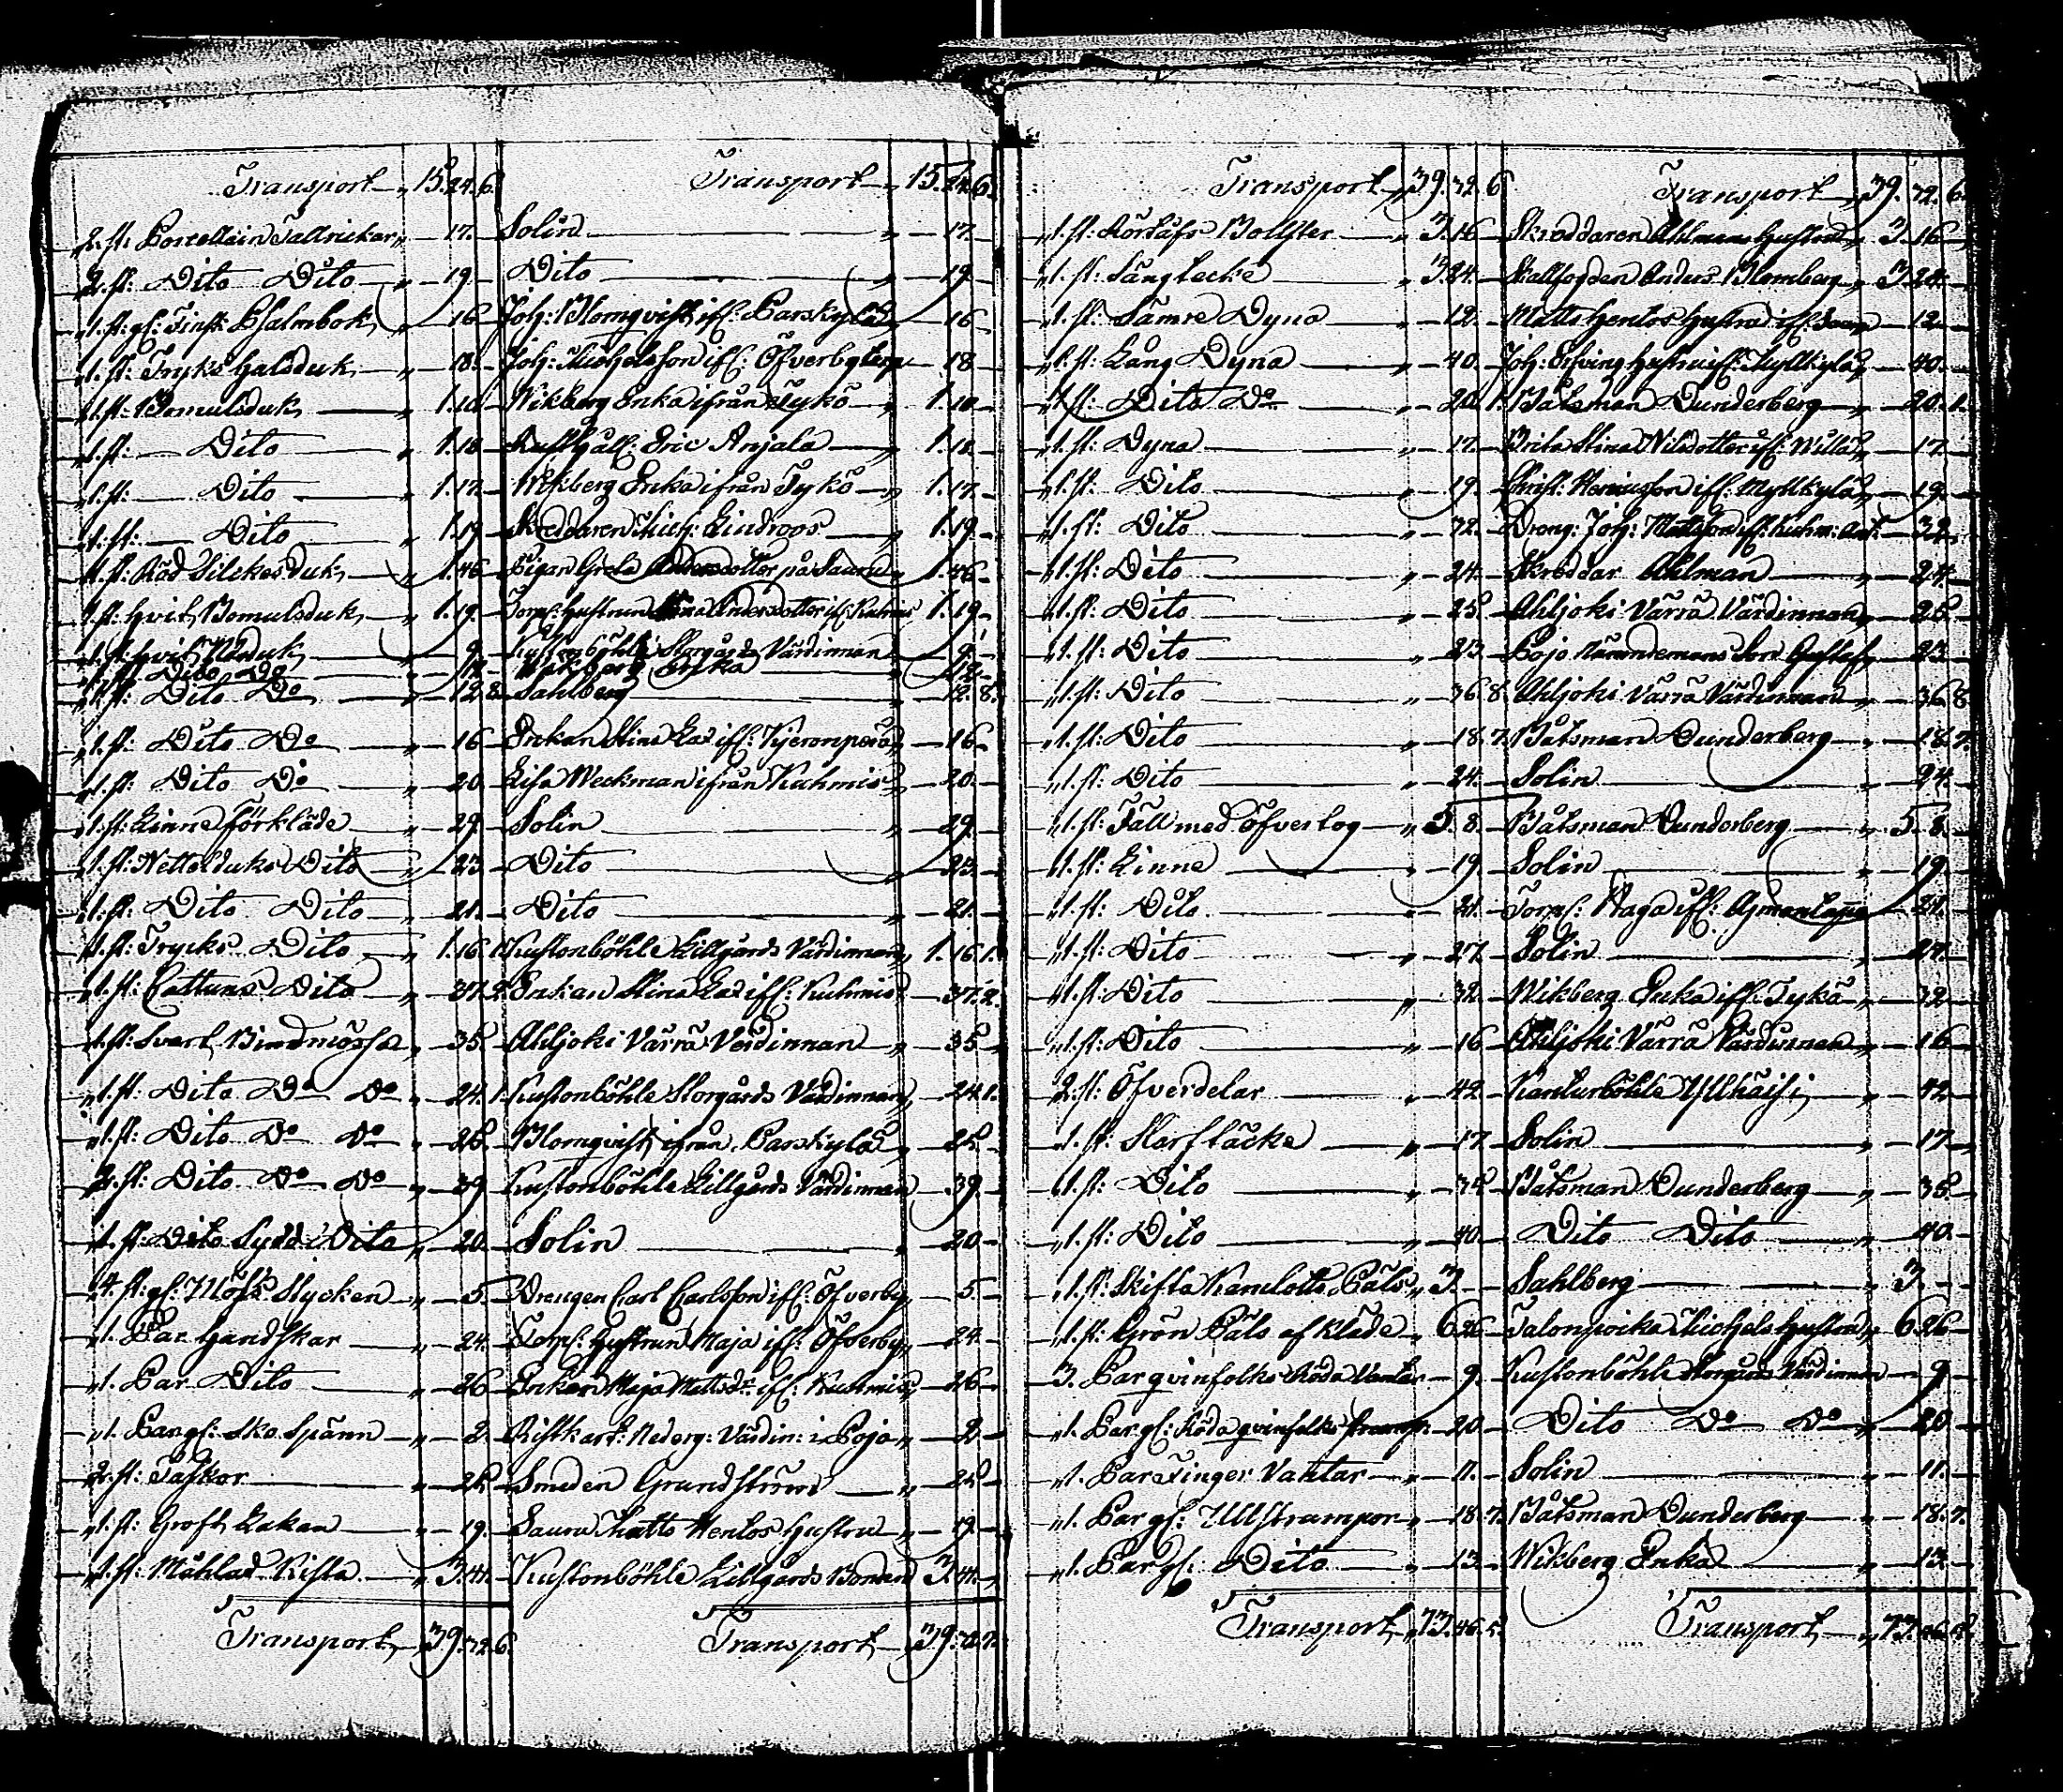 Transport „ 15. 24. 6. Transport „ 15. 24. 6.
„ 2. st: Porcellain Tallrickar „ — 17. — Solin „ — 17. —
„ 2. st: Dito Dito „ — 19. — Dito — 19. —
„ 1. st: gl: Finsk Psalmbok „ — 16 — Joh: Blomqvist ifl: Parskylä — 16 —
„ 1. st: Tryks Halsduk „ — 18. — Joh: Michelsson ifl: Öfverby — 18 —
„ 1. st: Bomulsduk „ 1. 10 — Wikberg Enka ifrån Tykö „ 1. 10 —
„ 1. st: Dito „ 1. 10 — Rusthåll: Eric Anjala „ 1. 10. —
„ 1. st: Dito „ 1. 17. — Wikberg Enka ifrån Tykö „ 1. 17. —
„ 1. st: Dito „ 1. 19. — Skreddaren Mich: Lindroos „ 1. 19. —
„ 1. st: Röd Silckes Duk „ 1. 46 — Pigan Greta Andersdotter på Sauru „ 1. 46 —
„ 1. st: Hvit Bomulsduk „ 1. 19. — Torp: Hustrun Stina Andersdotter ifl: Kuhmis 1. 19. —
„ 1. st: Hvit Näsduk — 9. — Kustonböhle Storgårds Värdinnan — 9. —
„ 1. st: Dito Do — 12. — Wikberg Enka — 12. —
„ 1. st: Dito Do — 12. 8. Sahlberg — 12. 8.
„ 1. st: Dito Do „ — 16 — Enkan Stina Las ifl: „ — 16 —
„ 1. st: Dito Do „ — 20. — Lisa Weckman ifrån Kuhmis „ — 20. —
„ 1. st: Linne Förkläde „ — 29. — Solin „ — 29. —
„ 1. st: Netteldux Dito „ — 23. — Dito „ — 23. —
„ 1. st: Dito Dito „ — 21. — Dito „ — 21. —
„ 1. st: Trycks Dito „ 1. 16. 1. Kustonböhle Lillgårds Värdinnan „ 1. 16. 1.
„ 1. st: Cattuns Dito „ — 37. 2. Enkan Stina Las ifl: Kuhmis — 37. 2.
„ 1. st: Svart Bindmössa „ — 35. — Ahljoki Värrä Värdinnan „ — 35. —
„ 1. st: Dito Do Do „ — 24. 1. Kustonböhle Storgårds Värdinnan „ — 24. 1.
„ 1. st: Dito Do Do „ — 28. — Blomqvist ifrån Parskylä — 28. —
„ 2. st: Dito Do Do „ — 39 — Kustonböhle Lillgårds Värdinnan — 39. —
„ 1. st: Dito Sydd Dito „ — 20. — Solin „ — 20. —
„ 4. st: gl: Möss Stycken „ — 5. — Drengen Carl Carlsson ifl: Öfverby „ — 5. —
„ 1. Par Handskar „ — 24. — Torp: Hustrun Maja ifl: Öfverby „ — 24. —
„ 1. Par Dito „ — 26 — Enkan Maja Mattsdr ifl: Kuhmis „ — 26 —
„ 1. Par gl: Sko Spänn „ — 2. — Ristkart: Nederg: Värdin: i Pojo „ — 2. —
„ 2. st: Taskor „ — 28. — Smeden Grundström „ — 28. —
„ 1. st: Groft Lakan „ — 19. — Sauru Matts Hentos Hustru „ — 19. —
„ 1. st: Måhlad Kista „ 3. 41. — Kustonböhle Lillgårds Bonden 3. 41. —
Transport „ 39. 32. 6. Transport „ 39. 32. 7.
Transport „ 39. 32. 6. Transport „ 39. 32. 6.
„ 1. st: Bollster „ 3. 16 — Skreddaren Ahlmans Hustru „ 3. 16 —
„ 1. st: Sängtecke „ 3. 24. — Stallfogden Anders Blomberg „ 3. 24. —
„ 1. st: Sämre Dyna „ — 12. — Matts Hentos Hustru ifl: — 12. —
„ 1. st: Lång Dyna „ — 40. — Joh: Hustru ifl: Myllkylä „ — 40. —
„ 1. st: Dito Do „ — 20. 1. Båtsman Dunderberg „ — 20. 1.
„ 1. st: Dyna „ — 17. — Brita Stina Nilsdotter ifl: — 17. —
„ 1. st: Dito „ — 19. — Christ: ifl: Myllkylä „ — 19. —
„ 1. st: Dito „ — 32. — Dreng: Joh: Mattsson ifl: Kuhm: — 32. —
„ 1. st: Dito „ — 24. — Skreddar Ahlman „ — 24. —
„ 1. st: Dito „ — 28. — Ahljoki Värrä Värdinnan „ — 28. —
„ 1. st: Dito „ — 23. — Pojo Nämndemans Son Gustaf „ — 23. —
„ 1. st: Dito „ — 36. 8. Ahljoki Värrä Värdinnan „ — 36. 8.
„ 1. st: Dito „ — 18. 7. Båtsman Dunderberg „ — 18. 7.
„ 1. st: Dito „ — 24. — Solin „ — 24. —
„ 1. st: Fäll med Öfvertog „ 5. 8. — Båtsman Dunderberg „ 5. 8. —
„ 1. st: Linne „ — 19. — Solin „ — 19. —
„ 1. st: Dito „ — 21. — Torp: Haga ifl: — 21. —
„ 1. st: Dito „ — 27. — Solin „ — 27. —
„ 1. st: Dito „ — 32. — Wikberg Enka ifl: Tykö „ — 32 —
„ 1. st: Dito „ — 16 — Ahljoki Värrä Värdinnan „ — 16 —
„ 2. st: Öfverdelar „ — 42. — Kanturböhle „ — 42 —
„ 1. st: Skarftäcke „ — 17. — Solin „ — 17. —
„ 1. st: Dito „ — 38. — Båtsman Dunderberg „ — 38. —
„ 1. st: Dito „ — 40. — Dito Dito „ — 40. —
„ 1. st: Skifta Kamlotts Päls „ 3. — — Sahlberg „ 3. — —
„ 1. st: Grön Päls af Kläde „ 6. 26 — Talonpoika Michels Hustru „ 6. 26 —
„ 3. Par qvinfolks Röda Vantar — 9. — Kustonböhle Storgårds Värdinnan — 9 —
„ 1. Par gl: Röda qvinfolks — 20 — Dito Do Do „ — 20 —
„ 1. Par Finger Vantar „ — 11. — Solin „ — 11. —
„ 1. Par gl: Ullstrumpor „ — 18. 7. Båtsman Dunderberg „ — 18. 7.
„ 1. Par gl: Dito „ — 13. — Wikberg Enka „ — 13. —
Transport „ 73. 46. 5. Transport „ 73. 46. 5.